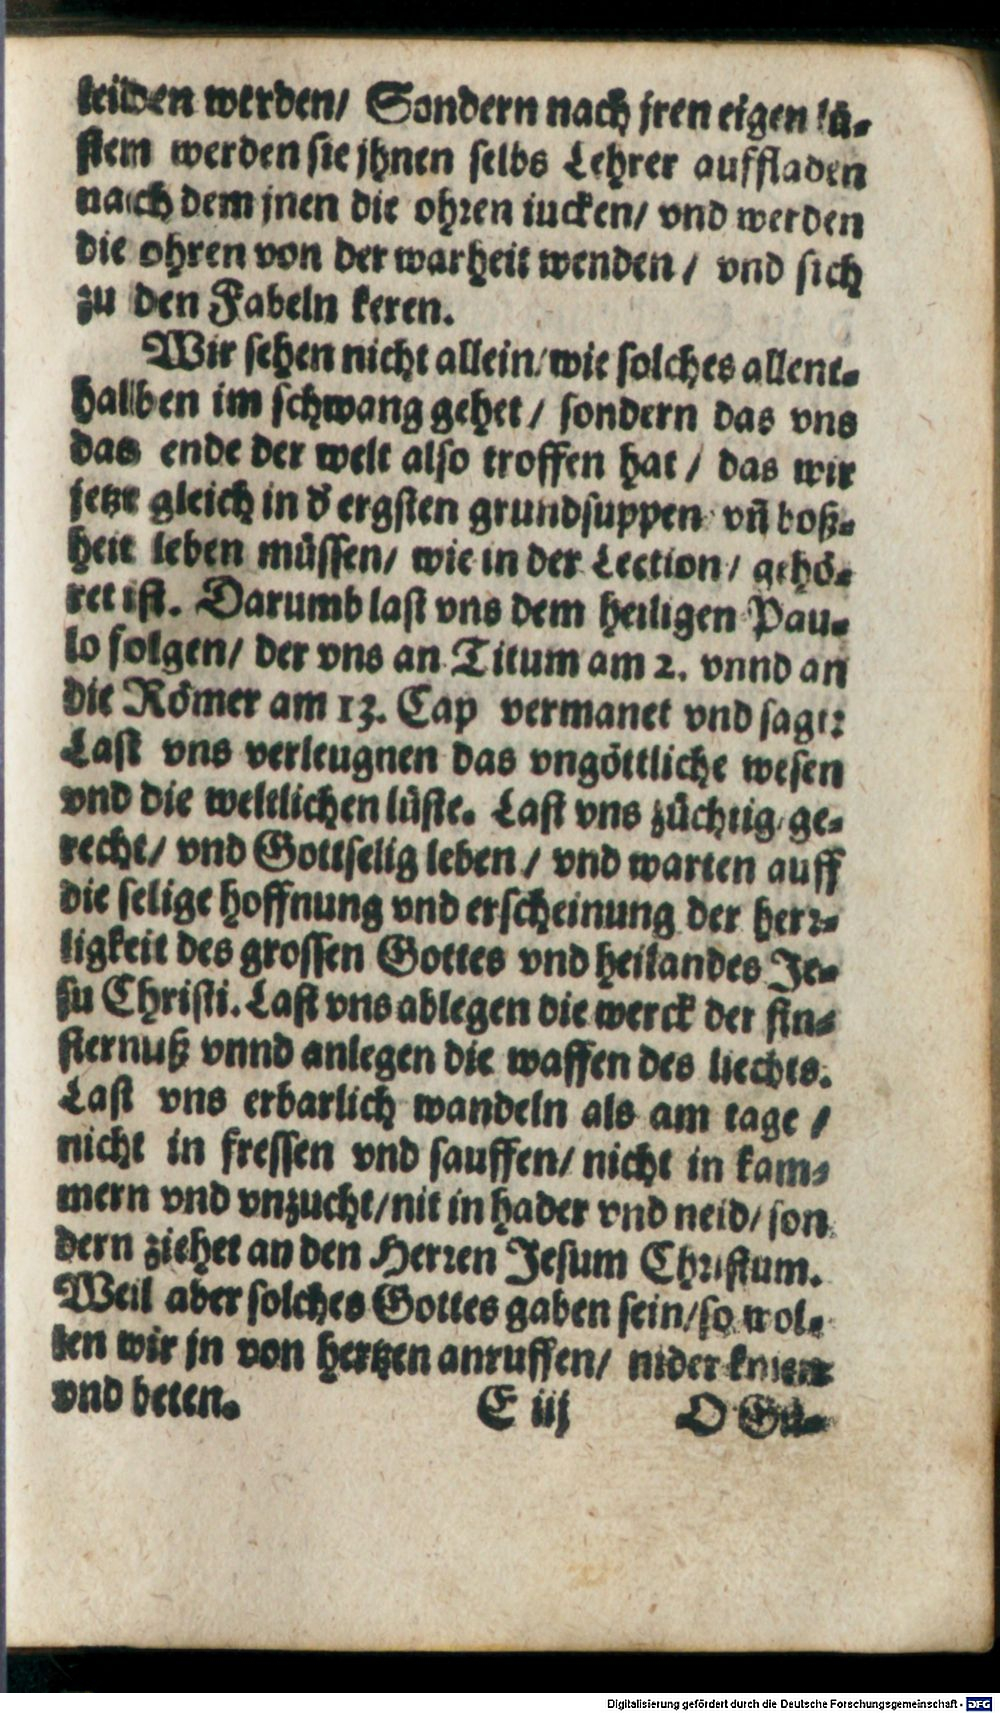 leiden werden/ Sondern nach jren eigen lü-
sten werden sie jhnen selbs Lehrer auffladen
nach dem jnen die ohren jucken/ vnd werden
die ohren von der warheit wenden/ vnd sich
zu den Fabeln keren.
Wir sehen nicht allein/ wie solches allent-
halben im schwang gehet/ sondern das vns
das ende der welt also troffen hat/ das wir
jetzt gleich in d' ergsten grundsuppen vn̄ boß-
heit leben müssen/ wie in der Lection/ gehö-
ret ist. Darumb last vns dem heiligen Pau-
lo folgen/ der vns an Titum am 2. vnnd an
die Römer am 13. Cap vermanet vnd sagt:
Last vns verleugnen das vngöttliche wesen
vnd die weltlichen lüste. Last vns züchtig/ ge-
recht/ vnd Gottselig leben/ vnd warten auff
die selige hoffnung vnd erscheinung der herr-
ligkeit des grossen Gottes vnd heilandes Je-
su Christi. Last vns ablegen die werck der fin-
sternuß vnnd anlegen die waffen des liechts.
Last vns erbarlich wandeln als am tage/
nicht in fressen vnd sauffen/ nicht in kam-
mern vnd vnzucht/ nit in hader vnd neid/ son
dern ziehet an den Herren Jesum Christum.
Weil aber solches Gottes gaben sein/ so wol-
len wir jn von hertzen anruffen/ nider knien
vnd beten. E iij O Gü-
Digitalisierung gefördert durch die Deutsche Forschungsgemeinschaft - DFG